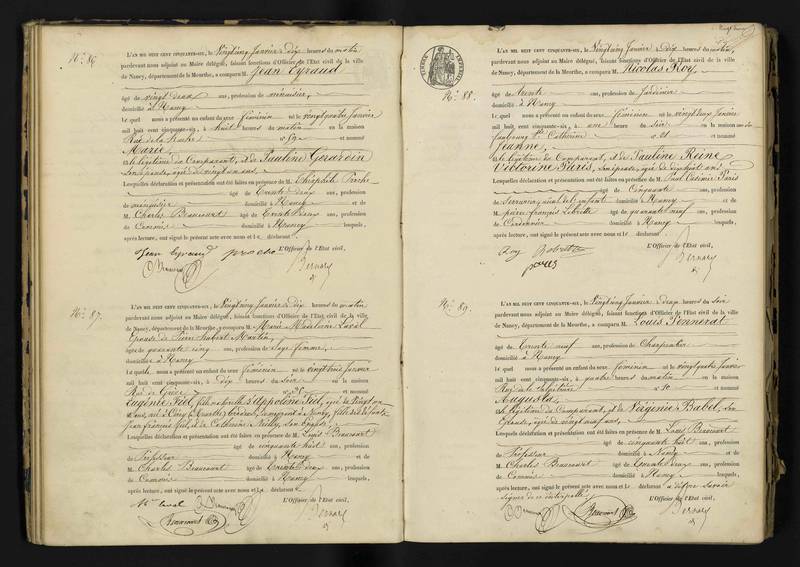 N.° 86
L'AN MIL HUIT CENT CINQUANTE-SIX, le Vingtcinq Janvier à dix heures du matin
pardevant nous adjoint au Maire délégué, faisant fonctions d'Officier de l'Etat civil de la ville
de Nancy, département de la Meurthe, a comparu M. Jean Eyraud
âgé de vingt deux ans, profession de menuisier,
domicilié à Nancy
Lequel nous a présenté un enfant du sexe féminin né le vingtquatre Janvier
mil huit cent cinquante-six, à huit heures du matin en la maison
Rue de la et nommé
Marie,
fille légitime du Comparant, et de Pauline Gérardin
son épouse, âgée de vingt un ans,
Lesquelles déclaration et présentation ont été faites en présence de M. Théophile
âgé de Trente deux ans, profession
de menuisier domicilié à Nancy et de
M. Charles Beaucourt âgé de Trente deux ans, profession
de Commis domicilié à Nancy lesquels,
après lecture, ont signé le présent acte avec nous et le déclarant
L'Officier de l'Etat civil,
Jean Eyraud
Bernard
N.° 87.
L'AN MIL HUIT CENT CINQUANTE-SIX, le Vingtcinq Janvier à dix heures du matin
pardevant nous adjoint au Maire délégué, faisant fonctions d'Officier de l'Etat civil de la ville
de Nancy, département de la Meurthe, a comparu M. Marie Madelaine Laval
Epouse de Pierre hubert Martin,
âgée de quarante cinq ans, profession de Sage femme,
domiciliée à Nancy
Laquelle nous a présenté un enfant du sexe féminin né le vingttrois Janvier
mil huit cent cinquante-six, à dix heures du Soir en la maison
Rue de et nommé
Eugénie Feil, fille naturelle d'Appoline Feil, âgée de Vingt un
ans,
jean françois feil, et de Catherine son Epouse,
Lesquelles déclaration et présentation ont été faites en présence de M. Louis Beaucourt
âgé de cinquante huit ans, profession
de Professeur domicilié à Nancy et de
M. Charles Beaucourt âgé de Trente deux ans, profession
de Commis domicilié à Nancy lesquels,
après lecture, ont signé le présent acte avec nous et la déclarant
L'Officier de l'Etat civil,
Laval
Bernard
L'AN MIL HUIT CENT CINQUANTE-SIX, le Vingtcinq Janvier à dix heures du matin,
pardevant nous adjoint au Maire délégué, faisant fonctions d'Officier de l'Etat civil de la ville
de Nancy, département de la Meurthe, a comparu M. Nicolas Roy,
N.° 88.
âgé de trente ans, profession de Jardinier
domicilié à Nancy
Lequel nous a présenté un enfant du sexe féminin né le vingtdeux Janvier
mil huit cent cinquante-six, à une heure du Soir en la maison
faubourg Ste Catherine n° 21 et nommé
Jeanne,
fille légitime du Comparant, et de Pauline Reine
Victorine Paris, son épouse, âgée de dixhuit ans
Lesquelles déclaration et présentation ont été faites en présence de M. Paul Casimir Paris
âgé de Cinquante ans, profession
de Serrurier, aïeul de l'enfant domicilié à Nancy et de
M. pierre françois âgé de quarante neuf ans, profession
de Cordonnier domicilié à Nancy lesquels,
après lecture, ont signé le présent acte avec nous et le déclarant
L'Officier de l'Etat civil,
Roy
paris
Bernard
N.° 89.
L'AN MIL HUIT CENT CINQUANTE-SIX, le Vingtcinq Janvier à deux heures du Soir
pardevant nous adjoint au Maire délégué, faisant fonctions d'Officier de l'Etat civil de la ville
de Nancy, département de la Meurthe, a comparu M. Louis Ponnerat
âgé de Trente neuf ans, profession de Charpentier
domicilié à Nancy
Lequel nous a présenté un enfant du sexe féminin né le vingtquatre Janvier
mil huit cent cinquante-six, à quatre heures du matin en la maison
Rue de la Salpêtrière n° 10 et nommé
Augusta,
fille légitime du Comparant, et de Virginie Babel, son
Epouse, âgée de vingt neuf ans,
Lesquelles déclaration et présentation ont été faites en présence de M. Louis Beaucourt
âgé de cinquante huit ans, profession
de Professeur domicilié à Nancy et de
M. Charles Beaucourt âgé de Trente deux ans, profession
de Commis domicilié à Nancy lesquels,
après lecture, ont signé le présent acte avec nous et le déclarant a dit ne savoir
signer de ce interpellé
L'Officier de l'Etat civil,
Bernard